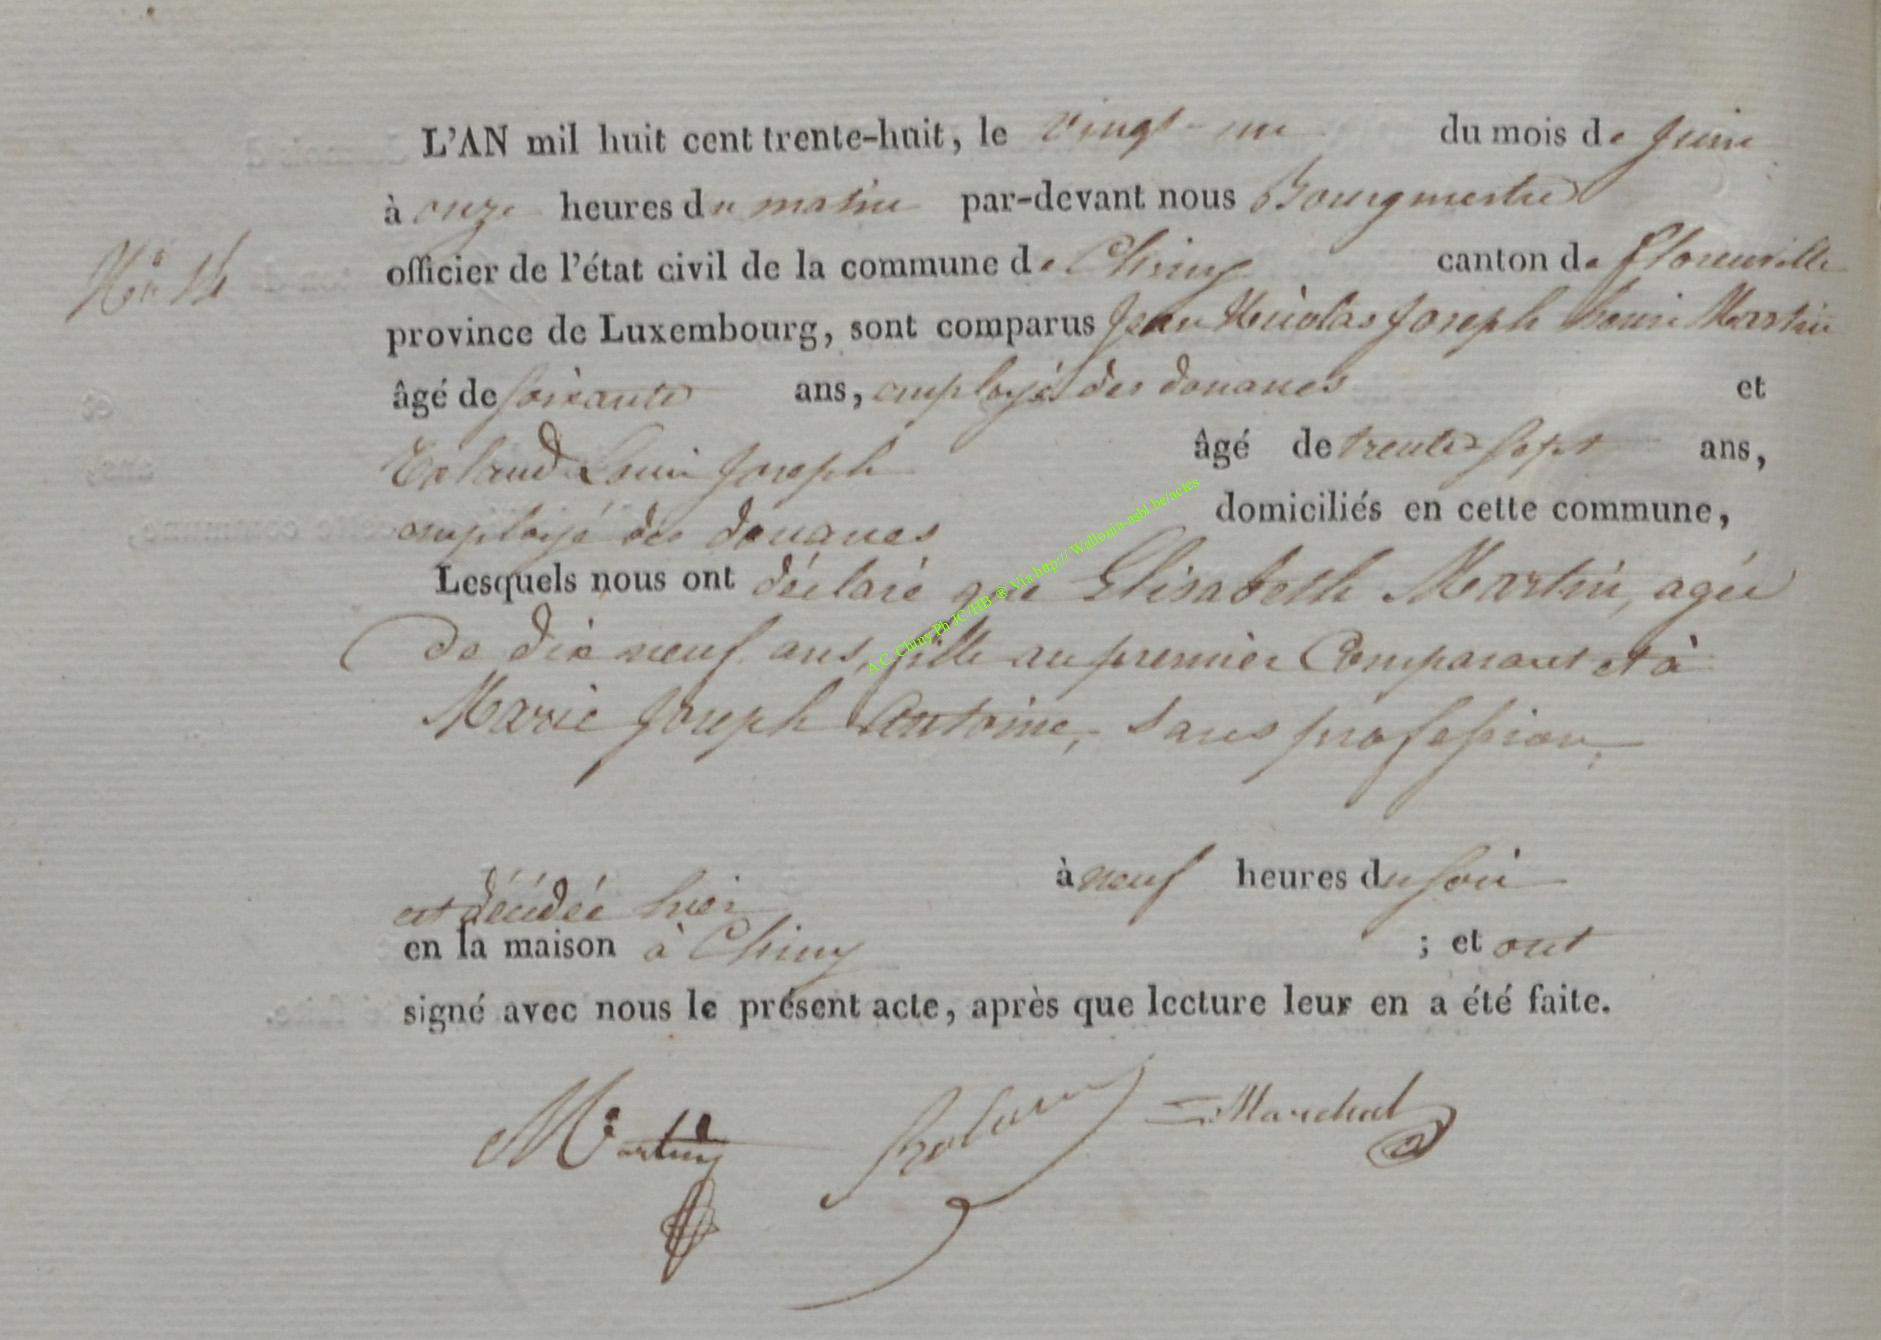 L'AN mil huit cent trente-huit, le vingt-un du mois de Juin
à onze heures du matin par-devant nous Bourgmestre
N° 14
officier de l'état civil de la commune de Chiny canton de florenville
province de Luxembourg, sont comparus Jean Nicolas Joseph Louis Martin
âgé de soixante ans, employé des douanes et
Louis Joseph âgé de trente sept ans,
employé des douanes domiciliés en cette commune,
Lesquels nous ont déclaré que Elisabeth Martin, agée
de dix neuf ans, fille au premier Comparant et à
Marie Joseph Antoine, sans profession,
est décédée hier à neuf heures du soir
en la maison à Chiny ; et ont
signé avec nous le présent acte, après que lecture leur en a été faite.
Martin Marchal
A.C. Chiny Ph JC/HB ® Via http:// Wallonia-asbl.be/actes